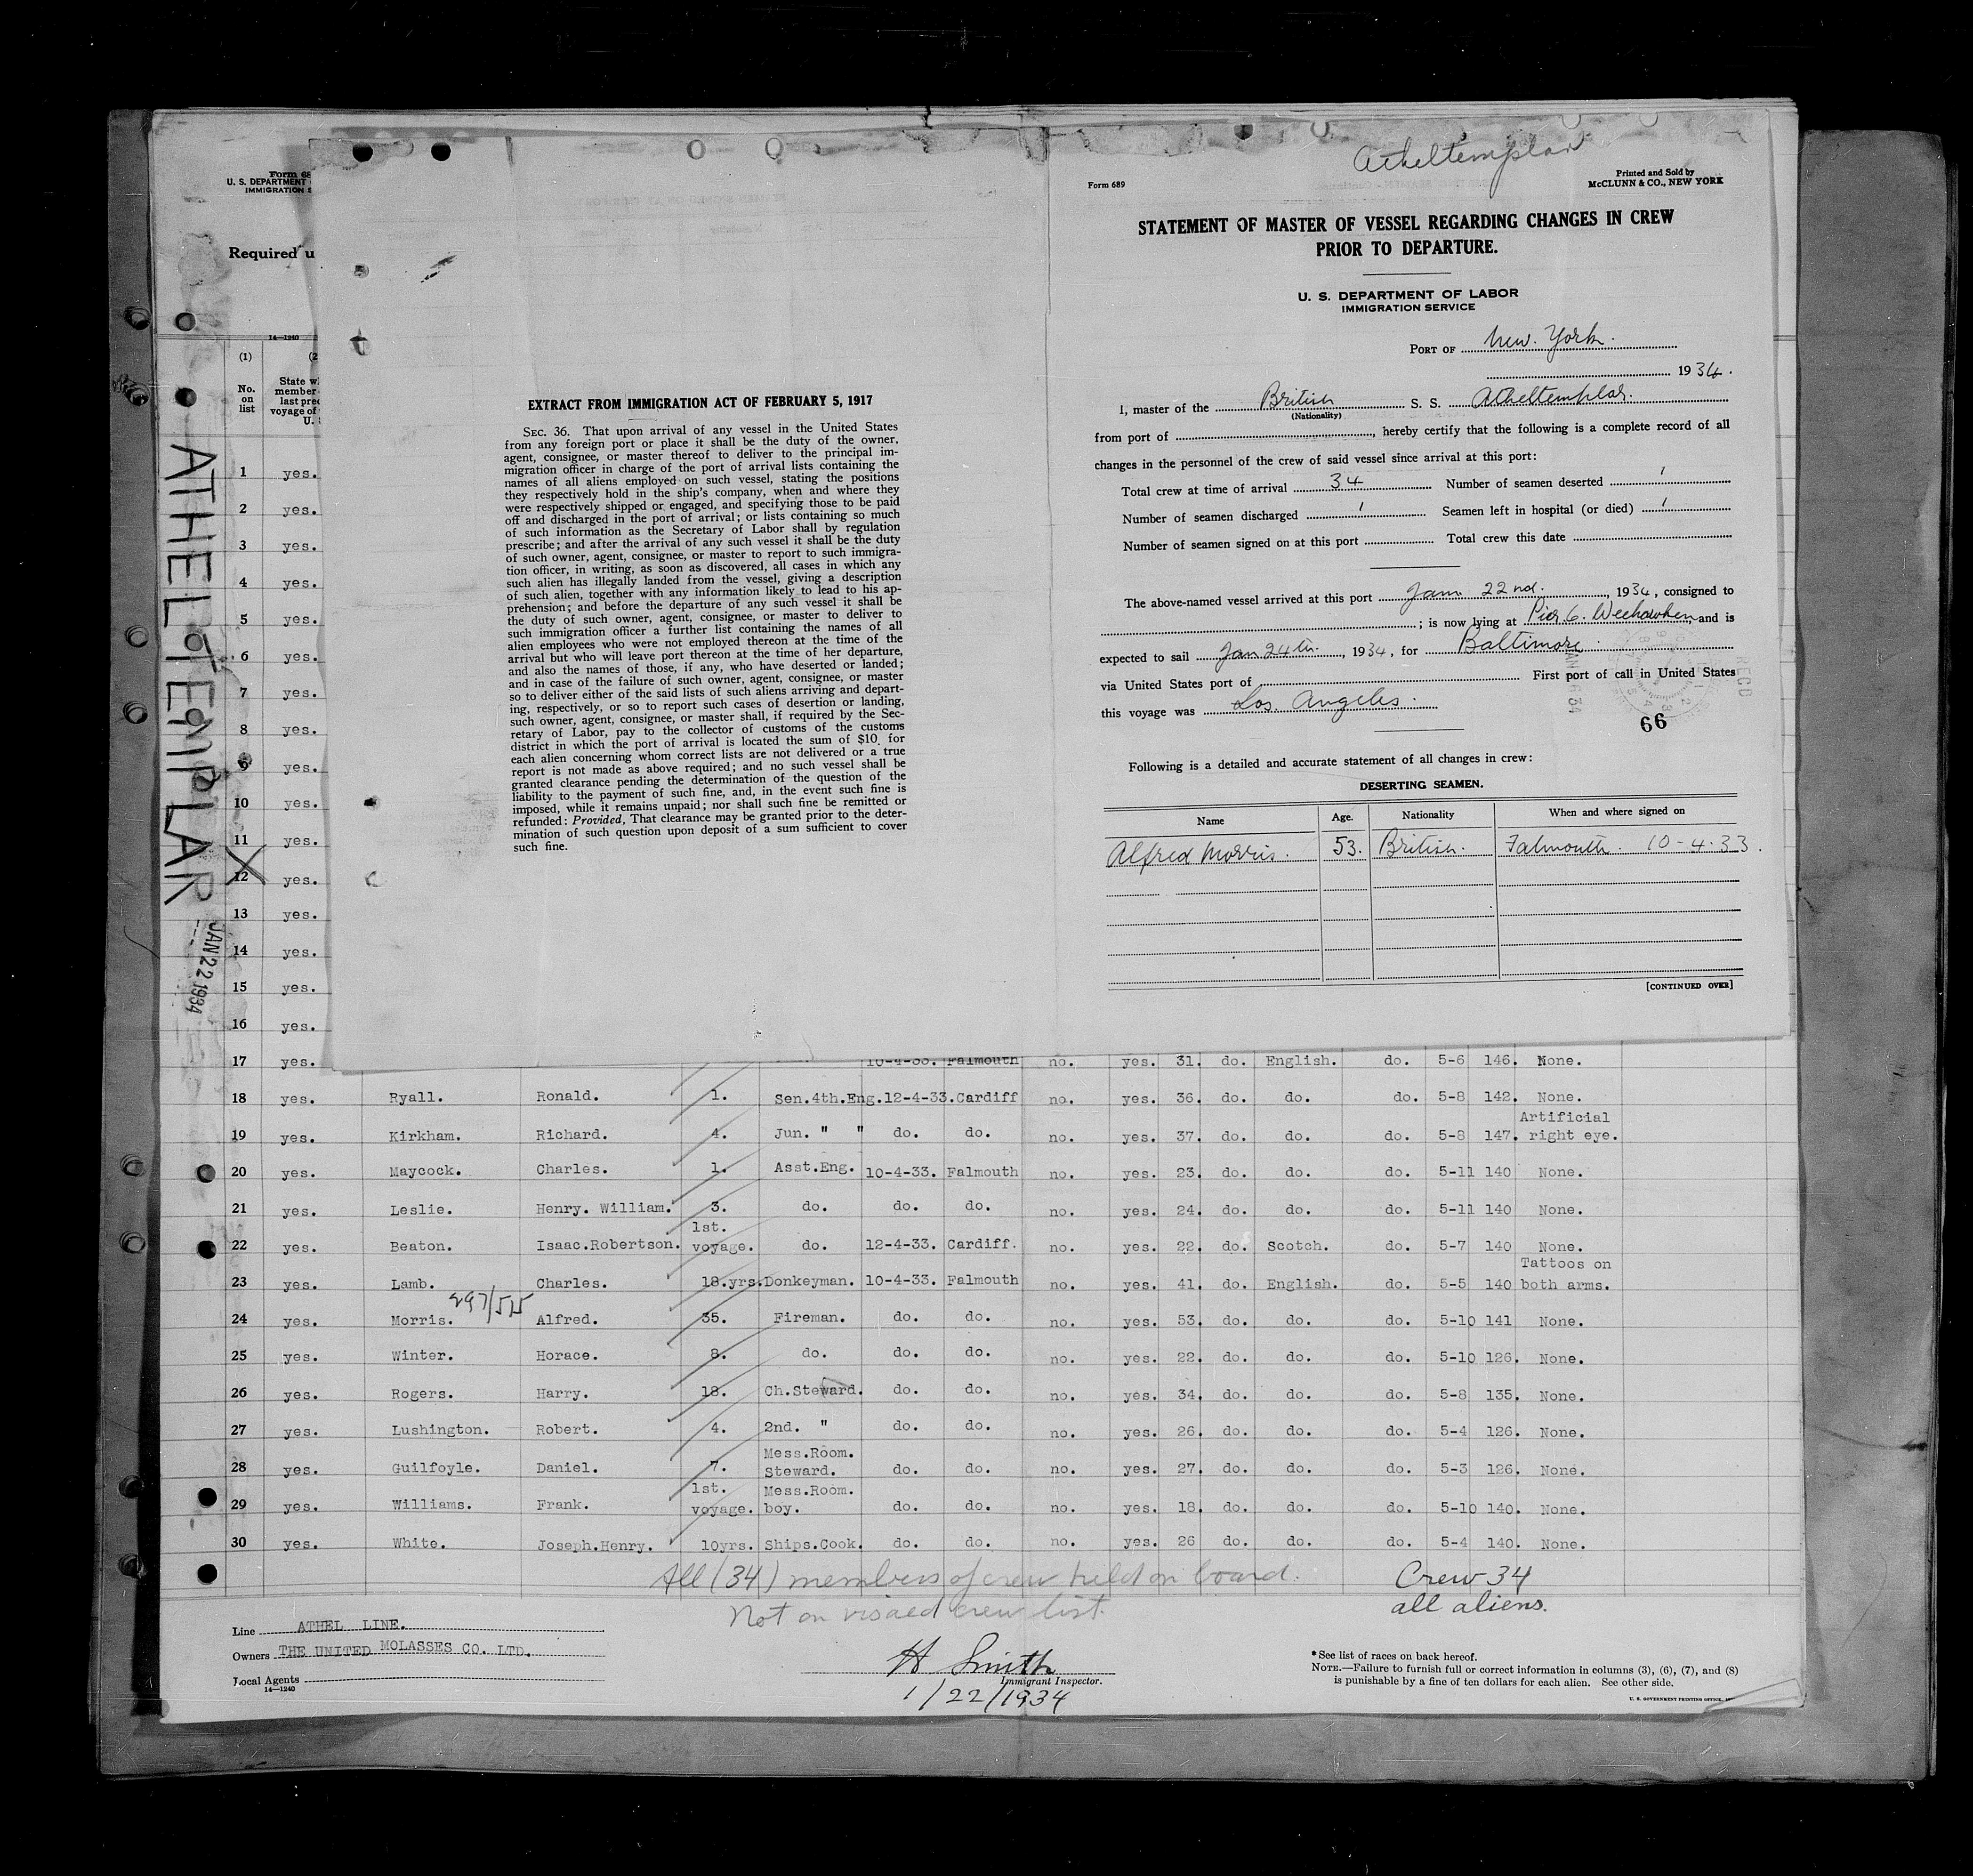 Atheltemplar
Form 689
Printed and Sold by
McCLUNN & CO., NEW YORK
STATEMENT OF MASTER OF VESSEL REGARDING CHANGES IN CREW
PRIOR TO DEPARTURE.
U. S. DEPARTMENT OF LABOR
IMMIGRATION SERVICE
PORT OF New York.
1934.
I, master of the British S. S. Atheltemplar.
(Nationality)
from port of , hereby certify that the following is a complete record of all
changes in the personnel of the crew of said vessel since arrival at this port:
Total crew at time of arrival 34 Number of seamen deserted 1
Number of seamen discharged 1 Seamen left in hospital (or died) 1
Number of seamen signed on at this port Total crew this date
The above-named vessel arrived at this port Jan 22nd. , 1934, consigned to
; is now lying at Pier 6. Weehawken and is
expected to sail Jan 24th. , 1934, for Baltimore.
via United States port of First port of call in United States
this voyage was Los Angeles.
RECD
66
Following is a detailed and accurate statement of all changes in crew:
DESERTING SEAMEN.
Name Age. Nationality When and where signed on
Alfred Morris. 53. British. Falmouth. 10-4-33.
[CONTINUED OVER]
EXTRACT FROM IMMIGRATION ACT OF FEBRUARY 5, 1917
SEC. 36. That upon arrival of any vessel in the United States
from any foreign port or place it shall be the duty of the owner,
agent, consignee, or master thereof to deliver to the principal im-
migration officer in charge of the port of arrival lists containing the
names of all aliens employed on such vessel, stating the positions
they respectively hold in the ship's company, when and where they
were respectively shipped or engaged, and specifying those to be paid
off and discharged in the port of arrival; or lists containing so much
of such information as the Secretary of Labor shall by regulation
prescribe; and after the arrival of any such vessel it shall be the duty
of such owner, agent, consignee, or master to report to such immigra-
tion officer, in writing, as soon as discovered, all cases in which any
such alien has illegally landed from the vessel, giving a description
of such alien, together with any information likely to lead to his ap-
prehension; and before the departure of any such vessel it shall be
the duty of such owner, agent, consignee, or master to deliver to
such immigration officer a further list containing the names of all
alien employees who were not employed thereon at the time of the
arrival but who will leave port thereon at the time of her departure,
and also the names of those, if any, who have deserted or landed;
and in case of the failure of such owner, agent, consignee, or master
so to deliver either of the said lists of such aliens arriving and depart-
ing, respectively, or so to report such cases of desertion or landing,
such owner, agent, consignee, or master shall, if required by the Sec-
retary of Labor, pay to the collector of customs of the customs
district in which the port of arrival is located the sum of $10 for
each alien concerning whom correct lists are not delivered or a true
report is not made as above required; and no such vessel shall be
granted clearance pending the determination of the question of the
liability to the payment of such fine, and, in the event such fine is
imposed, while it remains unpaid; nor shall such fine be remitted or
refunded: Provided, That clearance may be granted prior to the deter-
mination of such question upon deposit of a sum sufficient to cover
such fine.
Form 68
U. S. DEPARTMENT
IMMIGRATION S
Required u
14—1240
(1) (2
No. on list
State w
member
last pre
voyage of
U. S
ATHELTEMPLAR
JAN 22 1934
1 yes.
2 yes.
3 yes.
4 yes.
5 yes.
6 yes.
7 yes.
8 yes.
9 yes.
10 yes.
11 yes.
12 yes.
13 yes.
14 yes.
15 yes.
16 yes.
17 yes. 10-4-33. Falmouth no. yes. 31. do. English. do. 5-6 146. None.
18 yes. Ryall. Ronald. 1. Sen.4th.Eng.12-4-33.Cardiff no. yes. 36. do. do. do. 5-8 142. None.
19 yes. Kirkham. Richard. 4. Jun. " " do. do. no. yes. 37. do. do. do. 5-8 147. Artificial right eye.
20 yes. Maycock. Charles. 1. Asst.Eng. 10-4-33. Falmouth no. yes. 23. do. do. do. 5-11 140 None.
21 yes. Leslie. Henry. William. 3. do. do. do. no. yes. 24. do. do. do. 5-11 140 None.
22 yes. Beaton. Isaac.Robertson. 1st. voyage. do. 12-4-33. Cardiff. no. yes. 22. do. Scotch. do. 5-7 140 None.
23 yes. Lamb. Charles. 18.yrs.Donkeyman. 10-4-33. Falmouth no. yes. 41. do. English. do. 5-5 140 Tattoos on both arms.
297/515
24 yes. Morris. Alfred. 35. Fireman. do. do. no. yes. 53. do. do. do. 5-10 141 None.
25 yes. Winter. Horace. 8. do. do. do. no. yes. 22. do. do. do. 5-10 126. None.
26 yes. Rogers. Harry. 18. Ch.Steward. do. do. no. yes. 34. do. do. do. 5-8 135. None.
27 yes. Lushington. Robert. 4. 2nd. " do. do. no. yes. 26. do. do. do. 5-4 126. None.
28 yes. Guilfoyle. Daniel. 7. Mess.Room. Steward. do. do. no. yes. 27. do. do. do. 5-3 126. None.
29 yes. Williams. Frank. 1st. voyage. Mess.Room. boy. do. do. no. yes. 18. do. do. do. 5-10 140. None.
30 yes. White. Joseph.Henry. 10yrs. Ships.Cook. do. do. no. yes. 26 do. do. do. 5-4 140. None.
All (34) members of crew held on board. Crew 34
Not on visaed crew list. all aliens.
Line ATHEL LINE.
Owners THE UNITED MOLASSES CO. LTD.
Local Agents
14—1240
H Smith
Immigrant Inspector.
1/22/1934
*See list of races on back hereof.
NOTE.—Failure to furnish full or correct information in columns (3), (6), (7), and (8)
is punishable by a fine of ten dollars for each alien. See other side.
U. S. GOVERNMENT PRINTING OFFICE